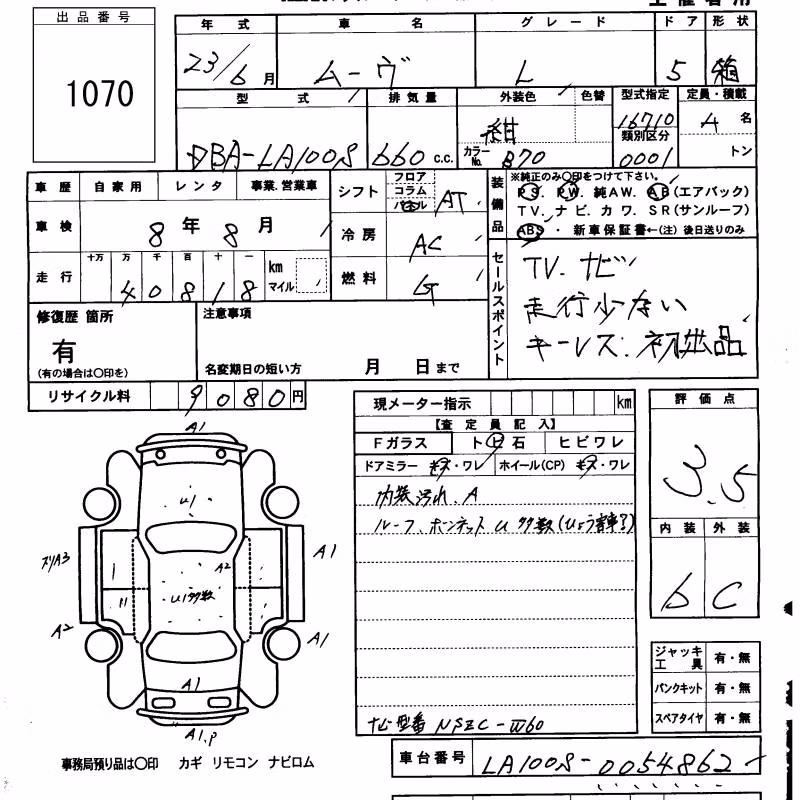 出品番号
1070
年式 車名 グレード ドア 形状
23/6月 ムーヴ L 5 箱
型式 排気量 外装色 色替 型式指定 定員・積載
DBA-LA100S 660 c.c. 紺 16710 4 名
類別区分
カラーNo. B70 0001 トン
車歴 自家用 レンタ 事業.営業車
シフト フロア コラム パネル AT
装備品
※純正のみ〇印をつけて下さい。
P S. P W. 純A W. A B (エアバック)
T V. ナ ビ. カ ワ. S R (サンルーフ)
ABS ・ 新車保証書←(注) 後日送りのみ
車検 8年 8月
冷房 AC
走行 十万 万 千 百 十 一 km マイル
4 0 8 1 8
燃料 G
セールスポイント
TV. ナビ
走行少ない
キーレス. 初出品
修復歴 箇所
有
(有の場合は〇印を)
注意事項
名変期日の短い方 月 日まで
リサイクル料 9080円
現メーター指示 km
【査定員記入】
Fガラス ト ビ 石 ヒビワレ
ドアミラー キズ・ワレ ホイール(CP) キズ・ワレ
内装汚れ. A
ルーフ、ボンネット U 多数(ひょう害車了)
ナビ型番 NSZC-W60
評価点
3.5
内装 外装
b C
ジャッキ工具 有・無
パンクキット 有・無
スペアタイヤ 有・無
A1
U1
A2
U1多数
A1
A3
A2
A1
A1
A1.P
事務局預り品は〇印 カギ リモコン ナビロム
車台番号 LA100S-0054862